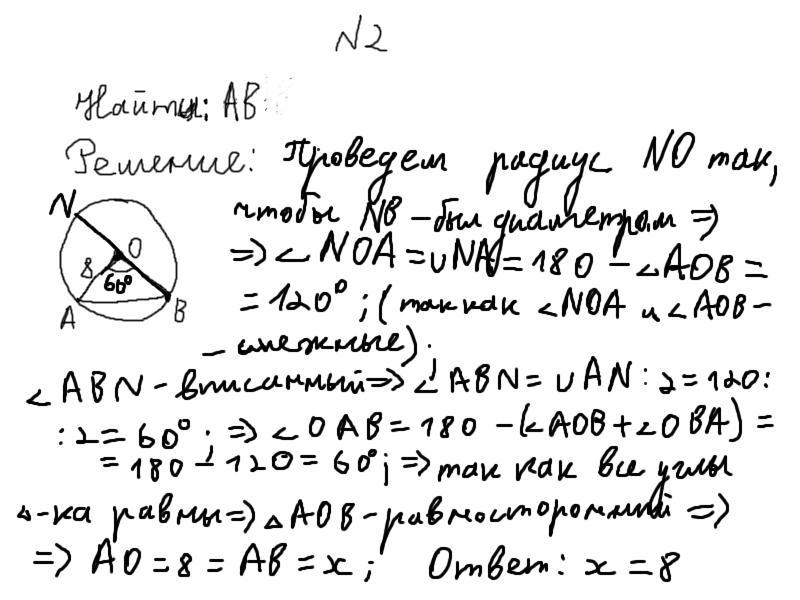 N2
Найти: AB
Решение: Проведем радиус NO так,
чтобы NB – был диаметром =>
=> ∠ NOA = ∪NA = 180 – ∠AOB =
= 120° ; (так как ∠NOA и ∠AOB –
– смежные).
∠ ABN – вписанный => ∠ ABN = ∪ AN : 2 = 120 :
: 2 = 60° ; => ∠ OAB = 180 – (∠AOB + ∠OBA) =
= 180 – 120 = 60° ; => так как все углы
△-ка равны => △ AOB – равносторонний =>
=> AO = 8 = AB = x ; Ответ: x = 8
N
O
8
60°
A
B